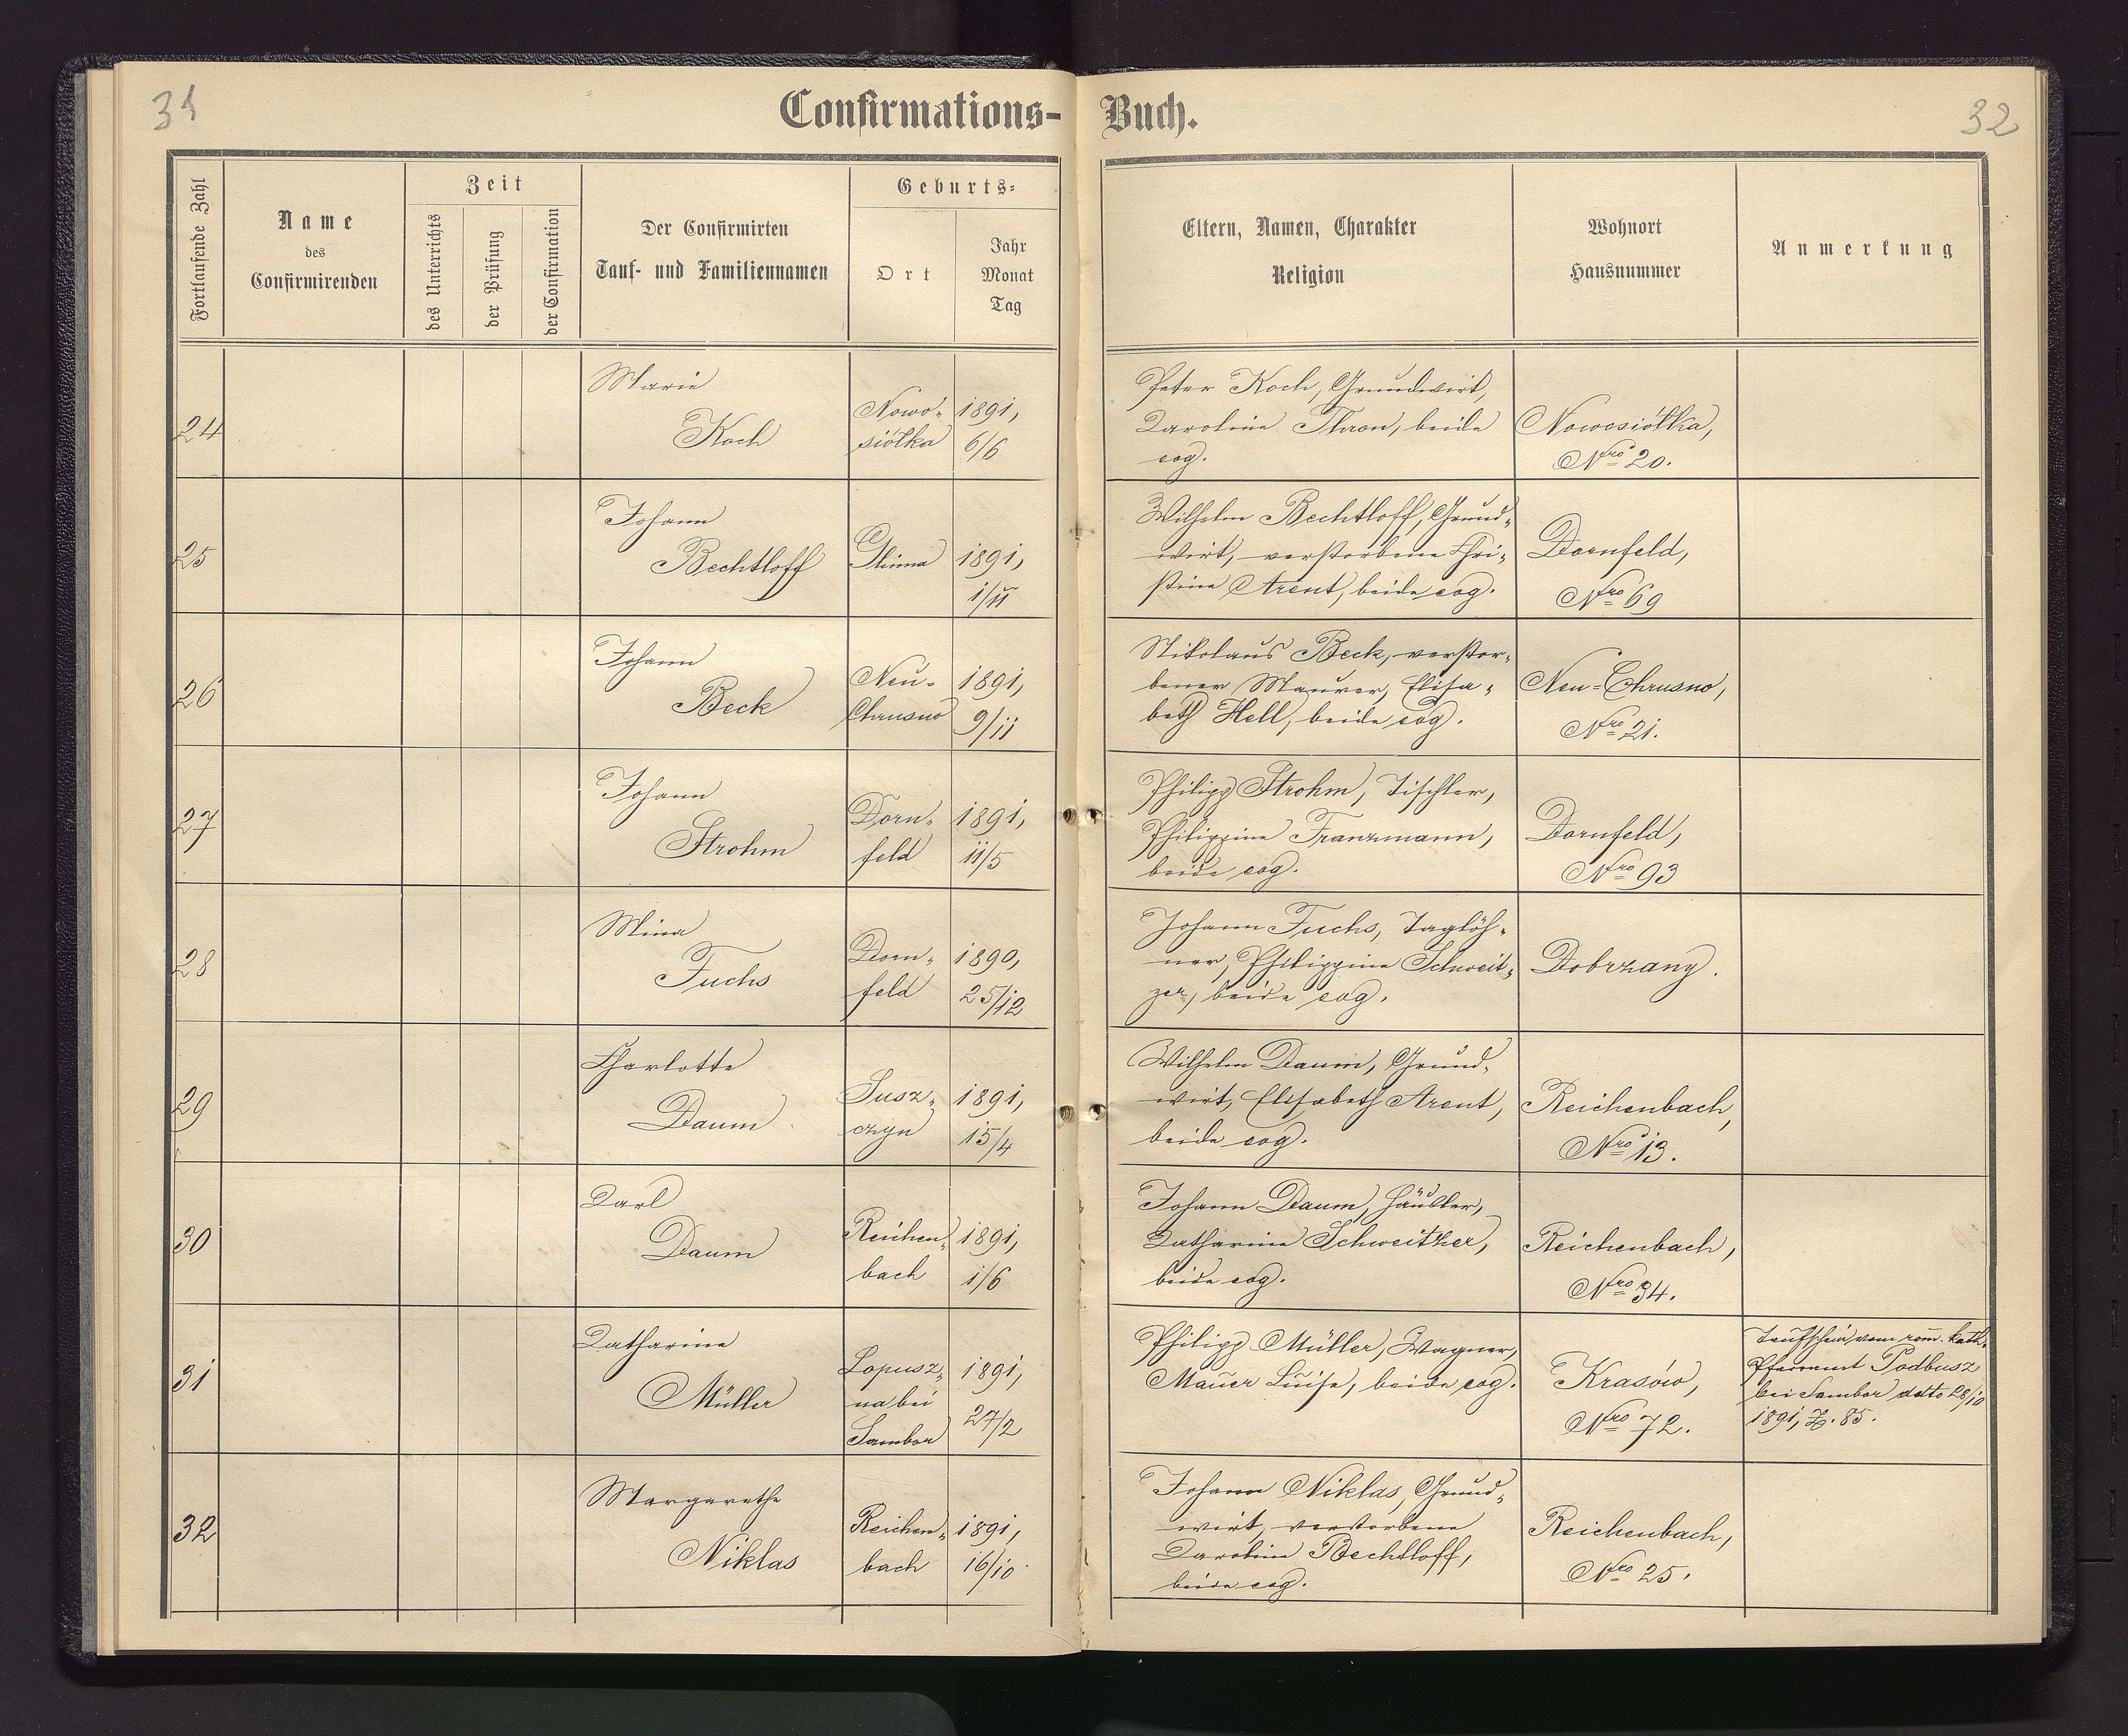 31
32
Confirmations-Buch.
Fortlaufende Zahl
Name
des
Confirmirenden
Zeit
des Unterrichts
der Prüfung
der Confirmation
Der Confirmirten
Tauf- und Familiennamen
Geburts-
Ort
Jahr
Monat
Tag
Eltern, Namen, Charakter
Religion
Wohnort
Hausnummer
Anmerkung
24
Marie
Koch
Nowo-
siółka
1891,
6/6
Peter Koch, Grundwirt,
Caroline Thron, beide
evg.
Nowosiółka,
Nro 20.
25
Johann
Bechtloff
Glinna
1891,
1/11
Wilhelm Bechtloff, Grund-
wirt, verstorbene Chri-
stine Arent, beide evg.
Dornfeld,
Nro 69
26
Johann
Beck
Neu-
Chrusno
1891,
9/11
Nikolaus Beck, verstor-
bener Maurer, Elisa-
beth Hell, beide evg.
Neu-Chrusno,
Nro 21.
27
Johann
Strohm
Dorn-
feld
1891,
11/5
Philipp Strohm, Tischler,
Philippine Franzmann,
beide evg.
Dornfeld,
Nro 93
28
Mina
Fuchs
Dorn-
feld
1890,
25/12
Johann Fuchs, Taglöh-
ner, Philippine Schweit-
zer, beide evg.
Dobrzany.
29
Charlotte
Daum
Susz-
czyn
1891,
15/4
Wilhelm Daum, Grund-
wirt, Elisabeth Arent,
beide evg.
Reichenbach,
Nro 13.
30
Carl
Daum
Reichen-
bach
1891,
1/6
Johann Daum, Häusler,
Catharine Schweitzer,
beide evg.
Reichenbach,
Nro 34.
31
Catharine
Müller
Lopusz-
na bei
Sambor
1891,
27/2
Philipp Müller, Wagner,
Mauer Luise, beide evg.
Krasów,
Nro 72.
Taufschein vom röm. kath.
Pfarramt Podbusz
bei Sambor ddto 28/10
1891, Z. 85.
32
Margarethe
Niklas
Reichen-
bach
1891,
16/10
Johann Niklas, Grund-
wirt, verstorbene
Caroline Bechtloff,
beide evg.
Reichenbach,
Nro 25.